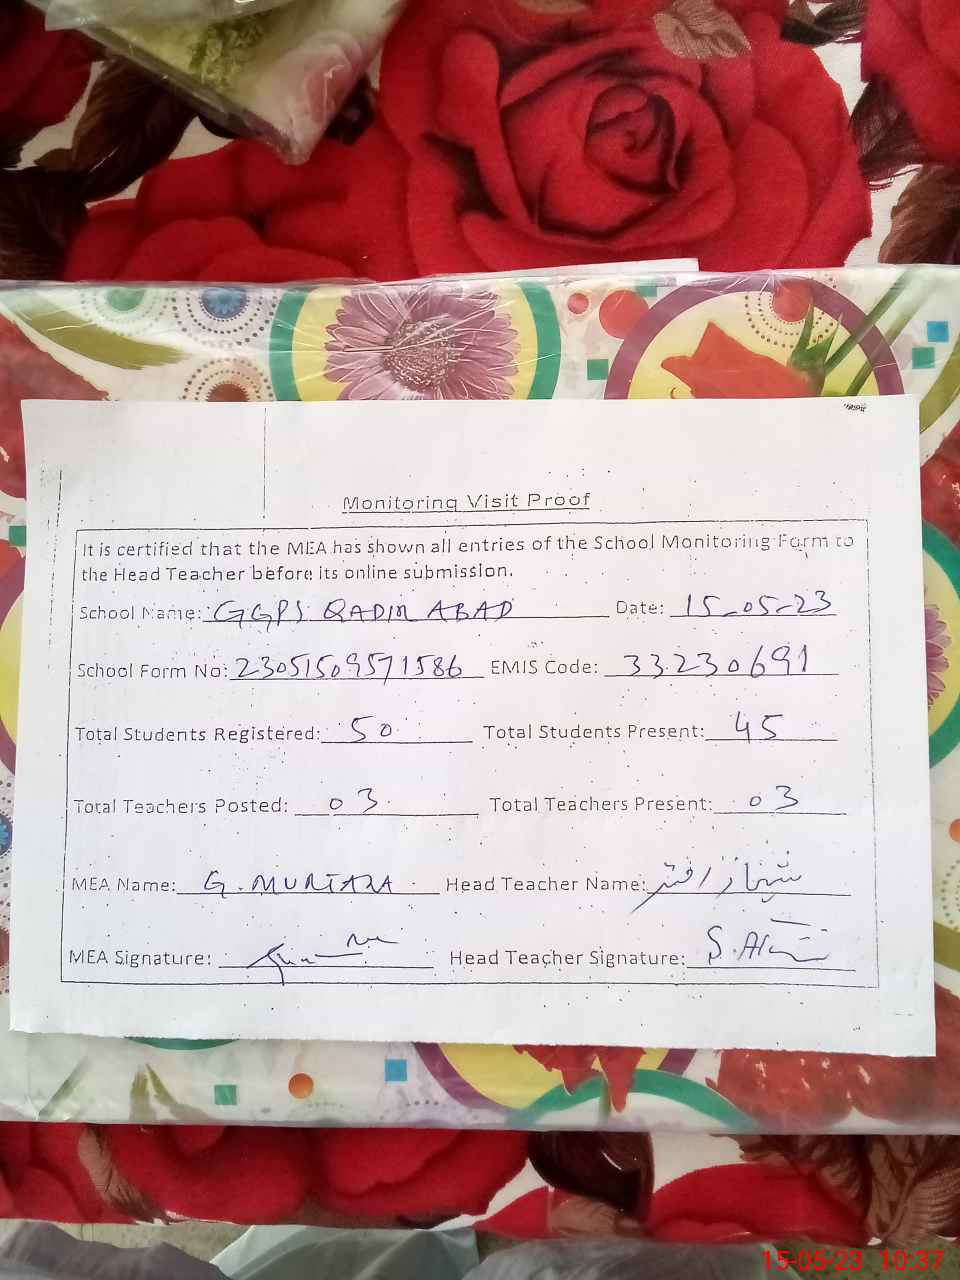 Monitoring Visit Proof
It is certified that the MEA has shown all entries of the School Monitoring Form to
the Head Teacher before its online submission.
School Name: GGPS QADIR ABAD Date: 15-05-23
School Form No: 23051509571586 EMIS Code: 33230691
Total Students Registered: 50 Total Students Present: 45
Total Teachers Posted: 03 Total Teachers Present: 03
MEA Name: G. MURTAZA Head Teacher Name: شہناز اختر
MEA Signature: Head Teacher Signature: S. 
15-05-23 10:37